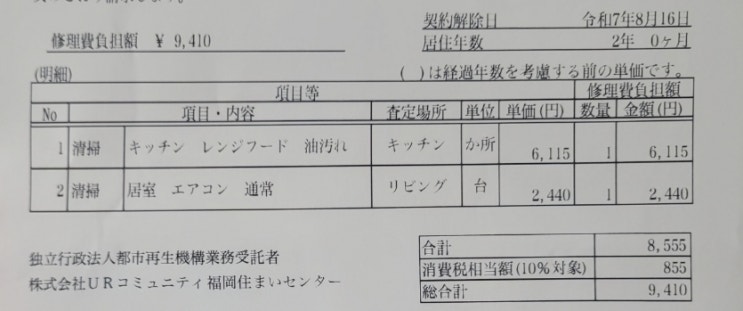 契約解除日 令和7年8月16日
修理費負担額 ¥ 9,410 居住年数 2年 0ヶ月
(明細) ( )は経過年数を考慮する前の単価です。
項目等 修理費負担額
No 項目・内容 査定場所 単位 単価(円) 数量 金額(円)
1 清掃 キッチン レンジフード 油汚れ キッチン か所 6,115 1 6,115
2 清掃 居室 エアコン 通常 リビング 台 2,440 1 2,440
合計 8,555
独立行政法人都市再生機構業務受託者 消費税相当額(10%対象) 855
株式会社URコミュニティ福岡住まいセンター 総合計 9,410